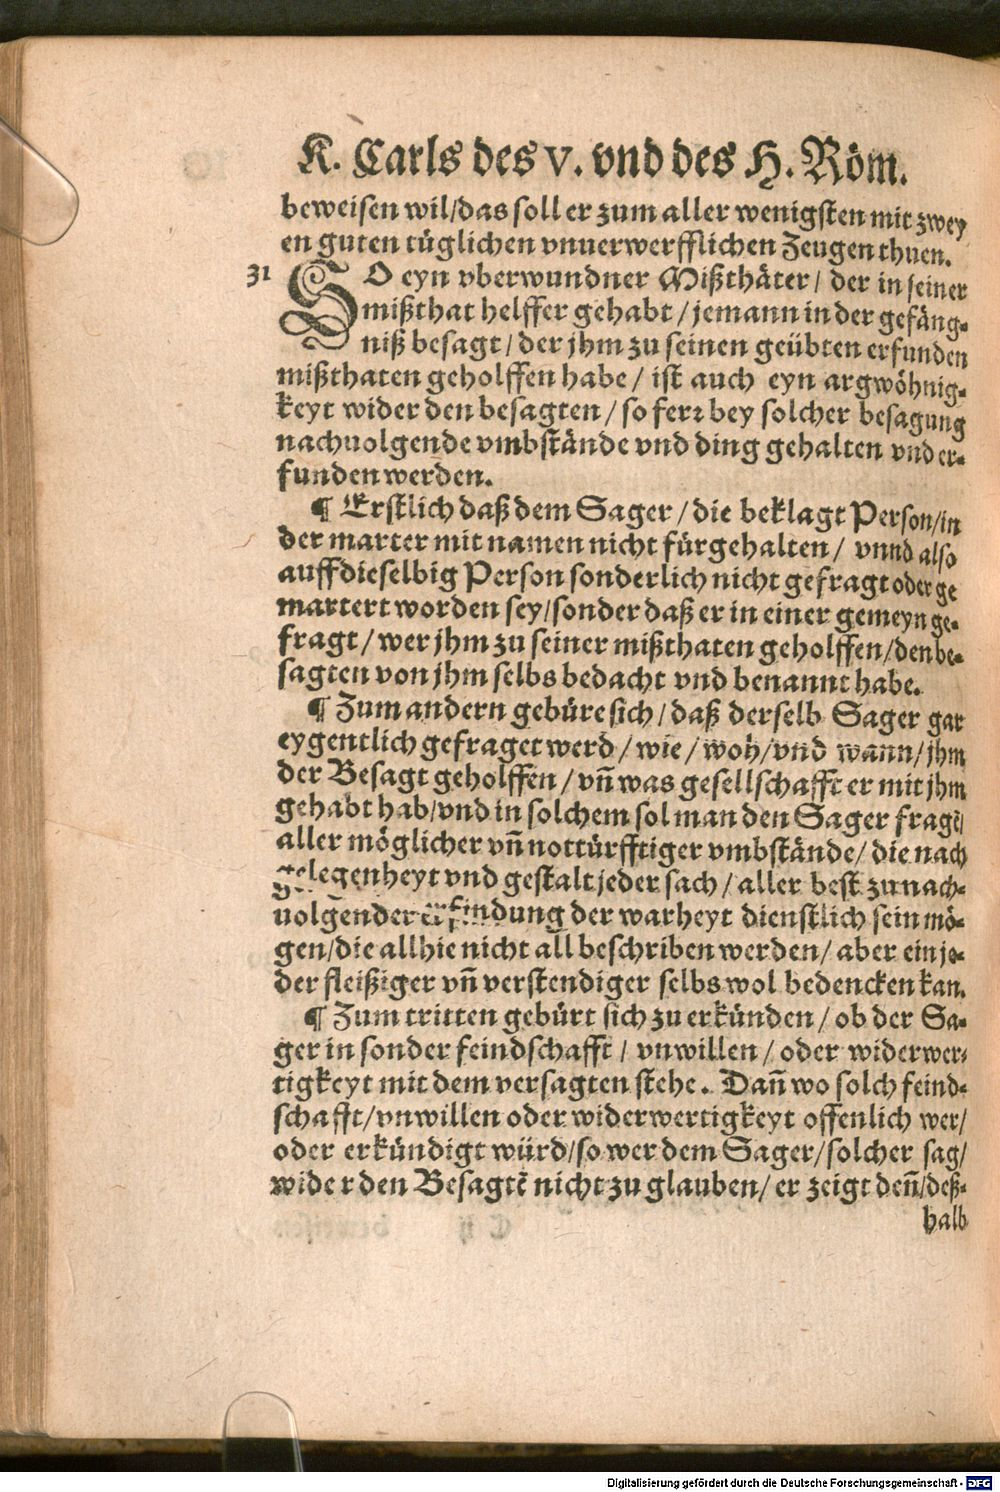 K. Carls des V. vnd des H. Röm.
beweisen wil/das soll er zum aller wenigsten mit zwey
en guten tüglichen vnuerwerfflichen Zeugen thuen.
31 SO eyn vberwundner Mißthäter/ der in seiner
mißthat helffer gehabt/jemann in der gefäng-
niß besagt/der jhm zu seinen geübten erfunden
mißthaten geholffen habe/ ist auch eyn argwöhnig-
keyt wider den besagten/so ferꝛ bey solcher besagung
nachuolgende vmbstände vnd ding gehalten vnd er-
funden werden.
¶ Erstlich daß dem Sager/die beklagt Person/in
der marter mit namen nicht fürgehalten/ vnnd also
auff dieselbig Person sonderlich nicht gefragt oder ge
martert worden sey/sonder daß er in einer gemeyn ge-
fragt/wer jhm zu seiner mißthaten geholffen/den be-
sagten von jhm selbs bedacht vnd benannt habe.
¶ Zum andern gebüre sich/daß derselb Sager gar
eygentlich gefraget werd/wie/woh/vnd wann/jhm
der Besagt geholffen/vñ was gesellschafft er mit jhm
gehabt hab/vnd in solchem sol man den Sager fragẽ/
aller möglicher vñ nottürfftiger vmbstände/die nach
gelegenheyt vnd gestalt jeder sach/aller best zu nach-
uolgender erfindung der warheyt dienstlich sein mö-
gen/die allhie nicht all beschriben werden/aber ein je-
der fleißiger vñ verstendiger selbs wol bedencken kan.
¶ Zum tritten gebürt sich zu erkünden/ob der Sa-
ger in sonder feindschafft/ vnwillen/oder widerwer-
tigkeyt mit dem versagten stehe. Dañ wo solch feind-
schafft/vnwillen oder widerwertigkeyt offenlich wer/
oder erkündigt würd/so wer dem Sager/solcher sag/
wider den Besagtẽ nicht zu glauben/er zeigt deñ/deß-
halb
Digitalisierung gefördert durch die Deutsche Forschungsgemeinschaft - DFG